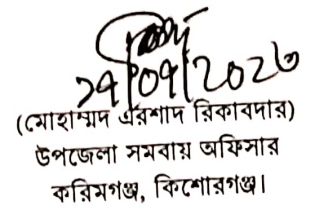 ২৭/০৭/২০২৬
(মোহাম্মদ এরশাদ রিকাবদার)
উপজেলা সমবায় অফিসার
করিমগঞ্জ, কিশোরগঞ্জ।